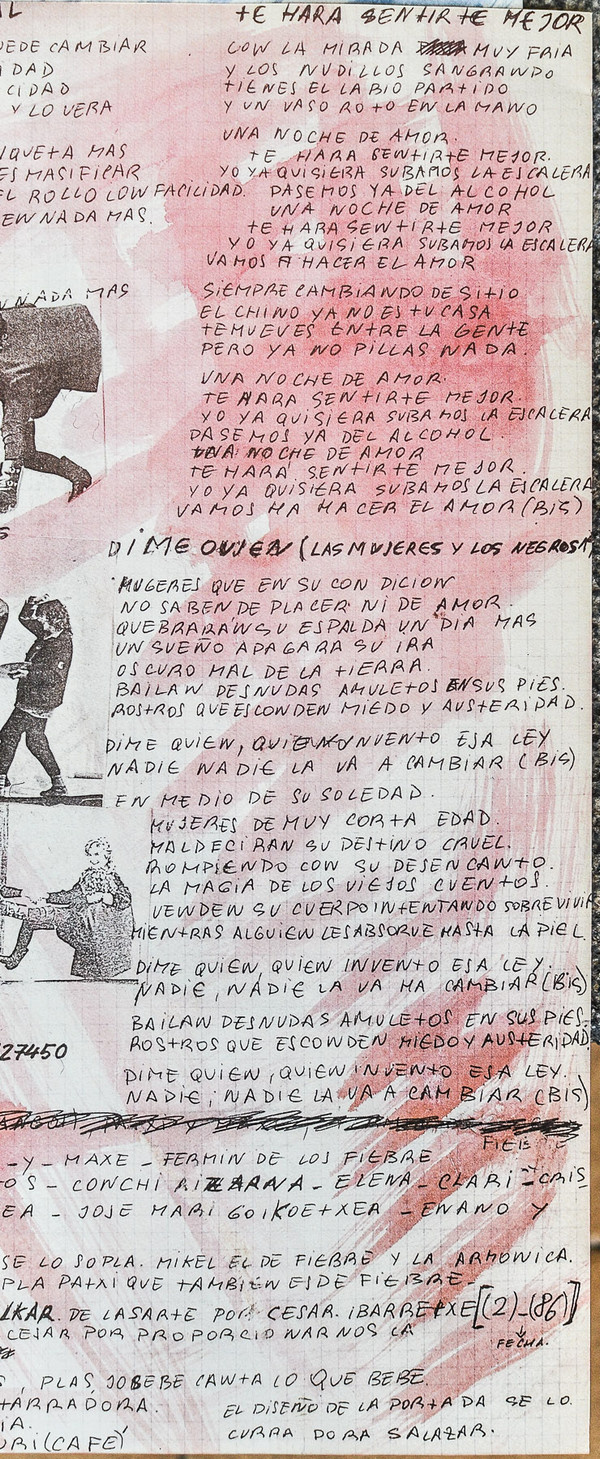 AL
UEDE CAMBIAR
DAD
CIDAD
Y LO VERA
IQUETA MAS
ES MASIFICAR
EL ROLLO LOW FACILIDAD.
EN NADA MAS.
N NADA MAS
TE HARA SENTIRTE MEJOR
CON LA MIRADA MUY FRIA
Y LOS NUDILLOS SANGRANDO
TIENES EL LABIO PARTIDO
Y UN VASO ROTO EN LA MANO
UNA NOCHE DE AMOR.
TE HARA SENTIRTE MEJOR.
YO YA QUISIERA SUBAMOS LA ESCALERA
PASEMOS YA DEL ALCOHOL
UNA NOCHE DE AMOR
TE HARA SENTIRTE MEJOR
YO YA QUISIERA SUBAMOS LA ESCALERA
VAMOS A HACER EL AMOR
SIEMPRE CAMBIANDO DE SITIO
EL CHINO YA NO ES TU CASA
TE MUEVES ENTRE LA GENTE
PERO YA NO PILLAS NADA.
UNA NOCHE DE AMOR.
TE HARA SENTIRTE MEJOR.
YO YA QUISIERA SUBAMOS LA ESCALERA
PASEMOS YA DEL ALCOHOL.
UNA NOCHE DE AMOR
TE HARA SENTIRTE MEJOR.
YO YA QUISIERA SUBAMOS LA ESCALERA
VAMOS HA HACER EL AMOR (BIS)
S
DIME QUIEN (LAS MUJERES Y LOS NEGROS
MUGERES QUE EN SU CONDICION
NO SABEN DE PLACER NI DE AMOR.
QUEBRARAN SU ESPALDA UN DIA MAS
UN SUEÑO APAGARA SU IRA
OSCURO MAL DE LA TIERRA.
BAILAN DESNUDAS AMULETOS EN SUS PIES.
ROSTROS QUE ESCONDEN MIEDO Y AUSTERIDAD.
DIME QUIEN, QUIEN INVENTO ESA LEY
NADIE NADIE LA VA A CAMBIAR (BIS)
EN MEDIO DE SU SOLEDAD.
MUJERES DE MUY CORTA EDAD.
MALDECIRAN SU DESTINO CRUEL.
ROMPIENDO CON SU DESENCANTO.
LA MAGIA DE LOS VIEJOS CUENTOS.
VENDEN SU CUERPO INTENTANDO SOBREVIVIR
MIENTRAS ALGUIEN LES ABSORVE HASTA LA PIEL.
DIME QUIEN, QUIEN INVENTO ESA LEY.
NADIE, NADIE LA VA HA CAMBIAR (BIS)
BAILAN DESNUDAS AMULETOS EN SUS PIES.
ROSTROS QUE ESCONDEN MIEDO Y AUSTERIDAD.
27450
DIME QUIEN, QUIEN INVENTO ESA LEY.
NADIE, NADIE LA VA A CAMBIAR (BIS)
- Y - MAXE - FERMIN DE LOS FIEBRE
OS - CONCHI - ELENA - CLARI - CRIS
EA - JOSE MARI GOIKOETXEA - ENANO Y
SE LO SOPLA. MIKEL EL DE FIEBRE Y LA ARMONICA.
PLA PATXI QUE TAMBIEN ES DE FIEBRE -
LKAR. DE LASARTE POR CESAR. IBARRETXE [(2)-(86)]
FECHA.
CESAR POR PROPORCIONARNOS LA
S, PLAS, JOBEBE CANTA LO QUE BEBE.
TARRADORA.
IA.
URI (CAFE)
EL DISEÑO DE LA PORTADA SE LO
CURRA DORA SALAZAR.